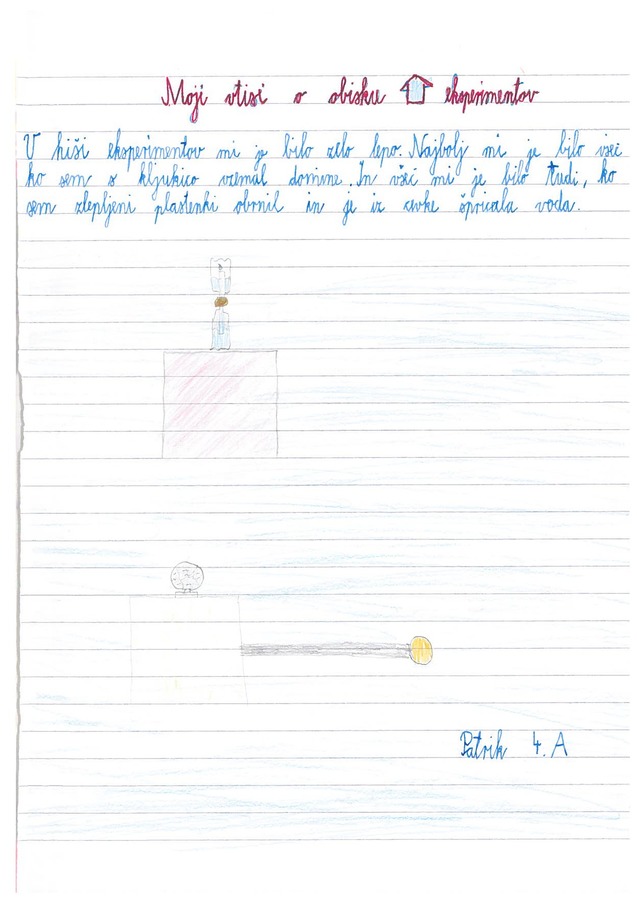 Moji vtisi o obisku eksperimentov
V hiši eksperimentov mi je bilo zelo lepo. Najbolj mi je bilo všeč
ko sem s kljukico vzemal domine. In všč mi je bilo tudi, ko
sem zlepljeni plastenki obrnil in je iz cevke špricala voda.
Patrik 4. A